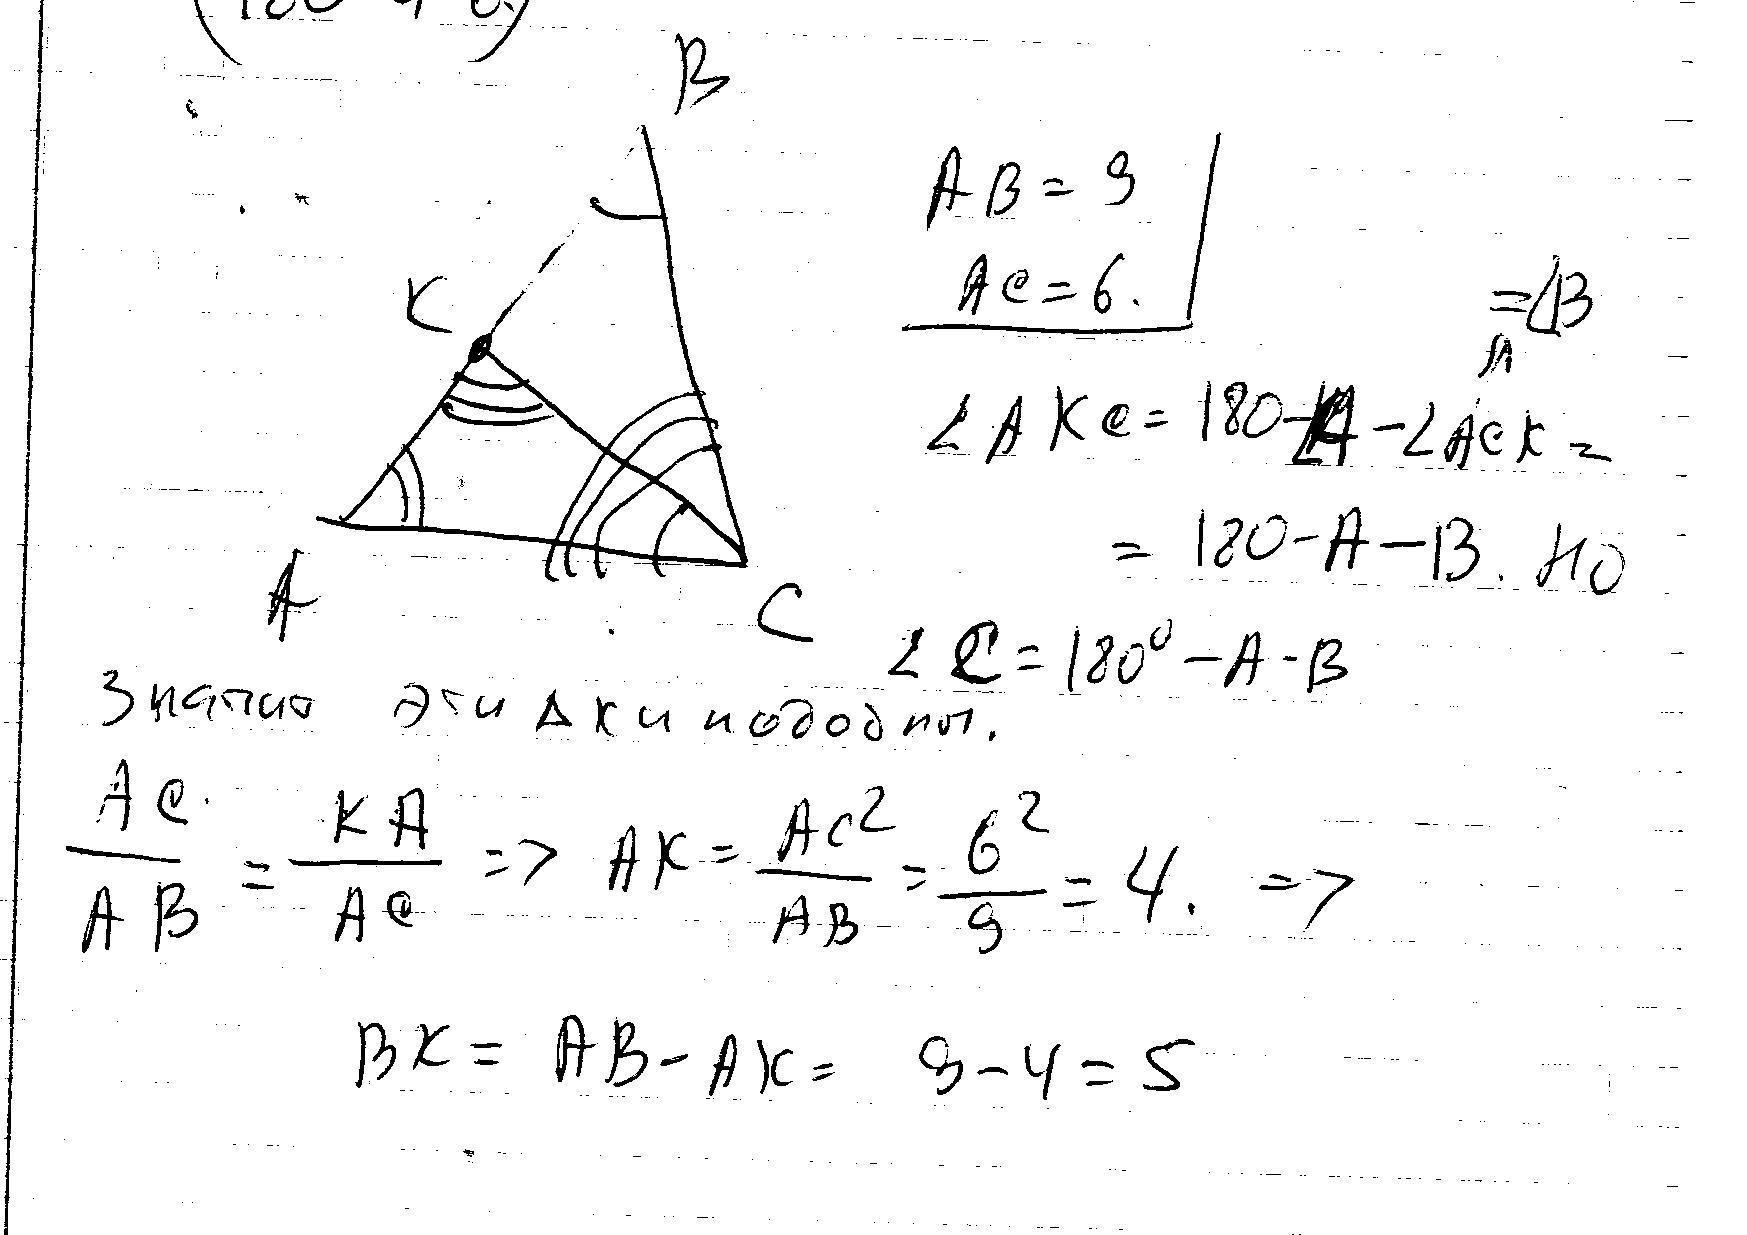 B
AB = 9
K
AC = 6.
= ∠B
∠AKC = 180 - ∠A - ∠ACK =
= 180 - A - B. Но
A
C
∠C = 180° - A - B
Значит эти Δки подобны.
AC / AB = KA / AC => AK = AC² / AB = 6² / 9 = 4. =>
BK = AB - AK = 9 - 4 = 5